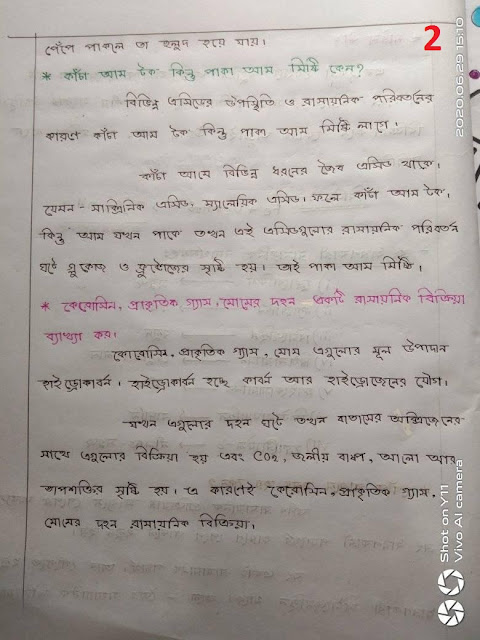 পেঁপে পাকলে তা হলুদ হয়ে যায়।
2
* কাঁচা আম টক কিন্তু পাকা আম মিষ্টি কেন?
বিভিন্ন এসিডের উপস্থিতি ও রাসায়নিক পরিবর্তনের
কারণে কাঁচা আম টক কিন্তু পাকা আম মিষ্টি লাগে।
কাঁচা আমে বিভিন্ন ধরনের জৈব এসিড থাকে।
যেমন - সাক্সিনিক এসিড, ম্যালেয়িক এসিড। ফলে কাঁচা আম টক।
কিন্তু আম যখন পাকে তখন এই এসিডগুলোর রাসায়নিক পরিবর্তন
ঘটে গ্লুকোজ ও ফ্রুক্টোজের সৃষ্টি হয়। তাই পাকা আম মিষ্টি।
* কেরোসিন, প্রাকৃতিক গ্যাস, মোমের দহন - একটি রাসায়নিক বিক্রিয়া
ব্যাখ্যা কর।
কেরোসিন, প্রাকৃতিক গ্যাস, মোম এগুলোর মূল উপাদান
হাইড্রোকার্বন। হাইড্রোকার্বন হচ্ছে কার্বন আর হাইড্রোজেনের যৌগ।
যখন এগুলোর দহন ঘটে তখন বাতাসের অক্সিজেনের
সাথে এগুলোর বিক্রিয়া হয় এবং CO₂, জলীয় বাষ্প, আলো আর
তাপশক্তির সৃষ্টি হয়। এ কারণেই কেরোসিন, প্রাকৃতিক গ্যাস,
মোমের দহন রাসায়নিক বিক্রিয়া।
2020.06.29 15:10
Shot on Y11
Vivo AI camera